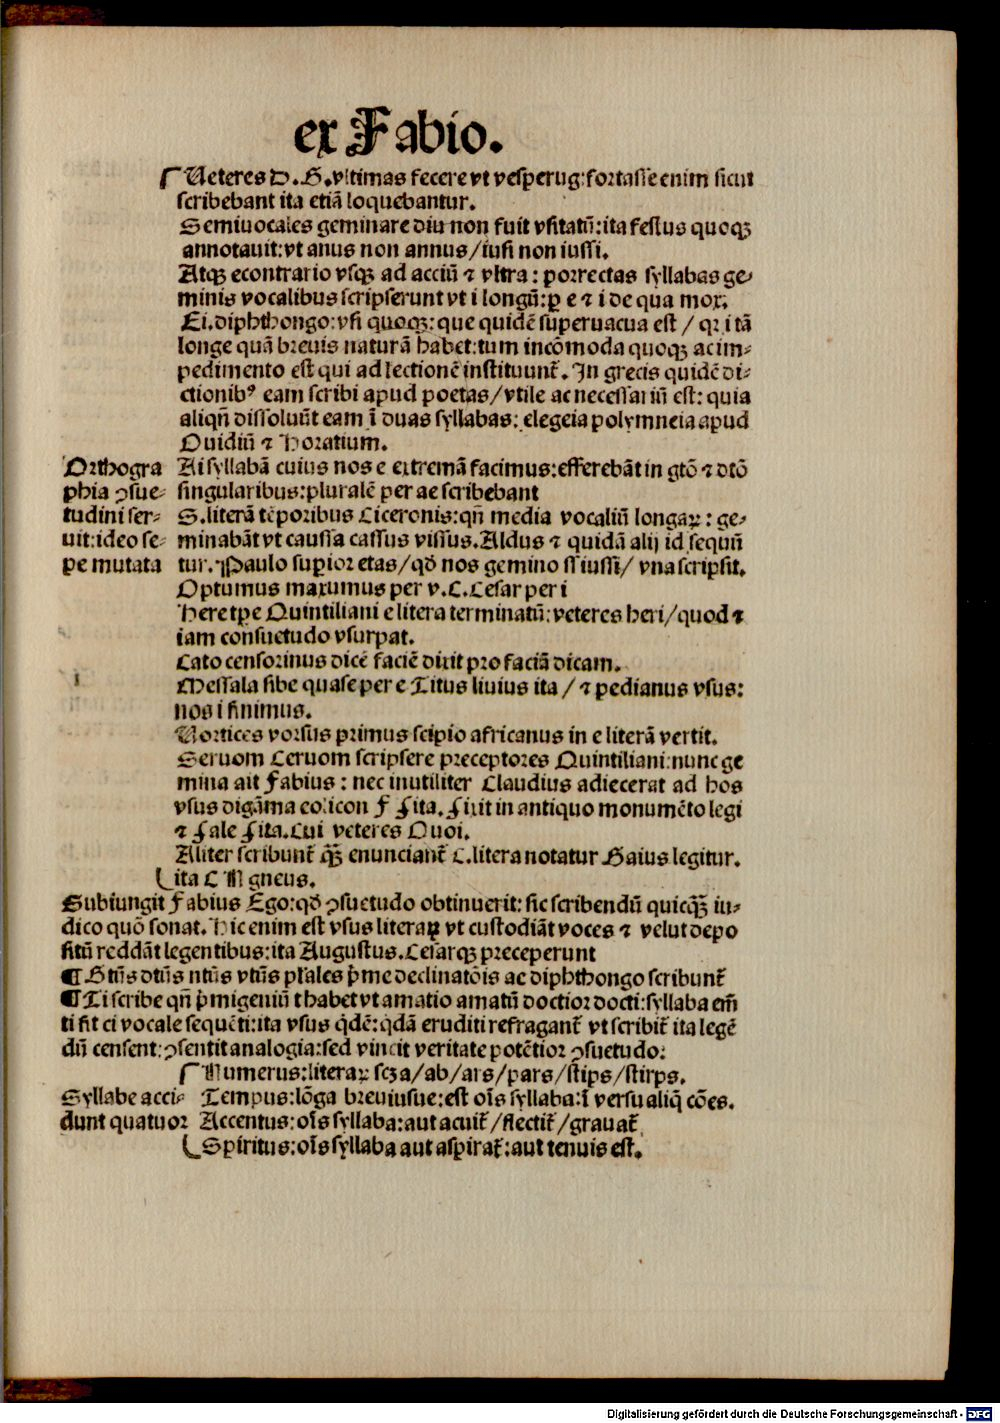 ex Fabio.
Ueteres D.S.vltimas fecere vt vesperug:fortasse enim sicut
scribebant ita etiã loquebantur.
Semiuocales geminare diu non fuit vsitatũ:ita festus quoqꝫ
annotauit:vt anus non annus/iusi non iussi.
Atqꝫ econtrario vsqꝫ ad acciũ ⁊ vltra: porrectas syllabas ge-
minis vocalibus scripserunt vt i longũ:ꝑ e ⁊ i de qua mox.
Ei.diphthongo:vsi quoqꝫ:que quidẽ superuacua est / qꝛ i tã
longe quã breuis naturã habet:tum incõmoda quoqꝫ ac im-
pedimento est qui ad lectionẽ instituunt̃. In grecis quidẽ di-
ctionibꝰ eam scribi apud poetas/vtile ac necessariũ est: quia
aliqñ dissoluũt eam ĩ duas syllabas: elegeia polymneia apud
Ouidiũ ⁊ Horatium.
Orthogra
phia ꝯsue-
tudini ser-
uit:ideo se-
pe mutata
Ai syllabã cuius nos e extremã facimus:efferebãt in gtõ ⁊ dtõ
singularibus:pluralẽ per ae scribebant
S.literã tẽporibus Ciceronis:qñ media vocaliũ longaꝝ: ge-
minabãt vt caussa cassus vissus.Aldus ⁊ quidã alij id sequũ
tur. Paulo supior etas/qđ nos gemino ss iussi/ vna scripsit.
Optumus maxumus per v.C.Cesar per i
Here tpe Quintiliani e litera terminatũ: veteres heri/quod ⁊
iam consuetudo vsurpat.
Cato censorinus dicẽ faciẽ dixit pro faciã dicam.
Messala sibe quase per e Titus liuius ita / ⁊ pedianus vsus:
nos i finimus.
Vortices vorsus primus scipio africanus in e literã vertit.
Seruom Ceruom scripsere preceptores Quintiliani:nunc ge
mina ait Fabius: nec inutiliter Claudius adiecerat ad hos
vsus digãma eolicon F Ⅎita. Ⅎixit in antiquo monumẽto legi
⁊ Ⅎale Ⅎita.Cui veteres Quoi.
Aliter scribunt̃ qꝫ̃ enunciant̃ C.litera notatur Gaius legitur.
ita C N gneus.
Subiungit Fabius Ego:qđ ꝯsuetudo obtinuerit: sic scribendũ quicqꝫ̃ iu-
dico quõ sonat. Hic enim est vsus literaꝝ vt custodiãt voces ⁊ velut depo
sitũ reddãt legentibus:ita Augustus.Cesarqꝫ preceperunt
¶ Gtũs dtũs ntũs vtũs pl̃ales p̃me declinatõis ac diphthongo scribunt̃
¶ Ti scribe qñ p̃migeniũ t habet vt amatio amatũ doctior docti:syllaba em̃
ti fit ci vocale sequẽti:ita vsus q̃dẽ:q̃dã eruditi refragant̃ vt scribit̃ ita legẽ
dũ censent:ꝯsentit analogia:sed vincit veritate potẽtior ꝯsuetudo:
Syllabe acci-
dunt quatuor
Numerus:literaꝝ scꝫ a/ab/ars/pars/stips/stirps.
Tempus:lõga breuiusue:est oĩs syllaba:ĩ versu aliq̃ cões.
Accentus:oĩs syllaba:aut acuit̃/flectit̃/grauat̃
Spiritus:oĩs syllaba aut aspirat̃:aut tenuis est.
Digitalisierung gefördert durch die Deutsche Forschungsgemeinschaft - DFG